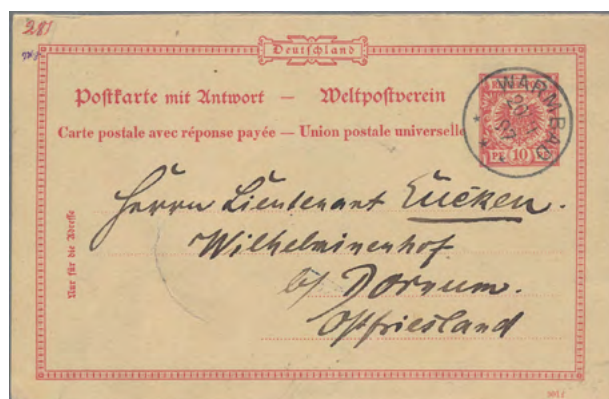 281
Deutschland
Postkarte mit Antwort — Weltpostverein
Carte postale avec réponse payée — Union postale universelle
WARMBAD
PF 10
Herrn Lieutenant Eucken.
Wilhelminenhof
b/ Dornum.
Ostfriesland
Nur für die Adresse